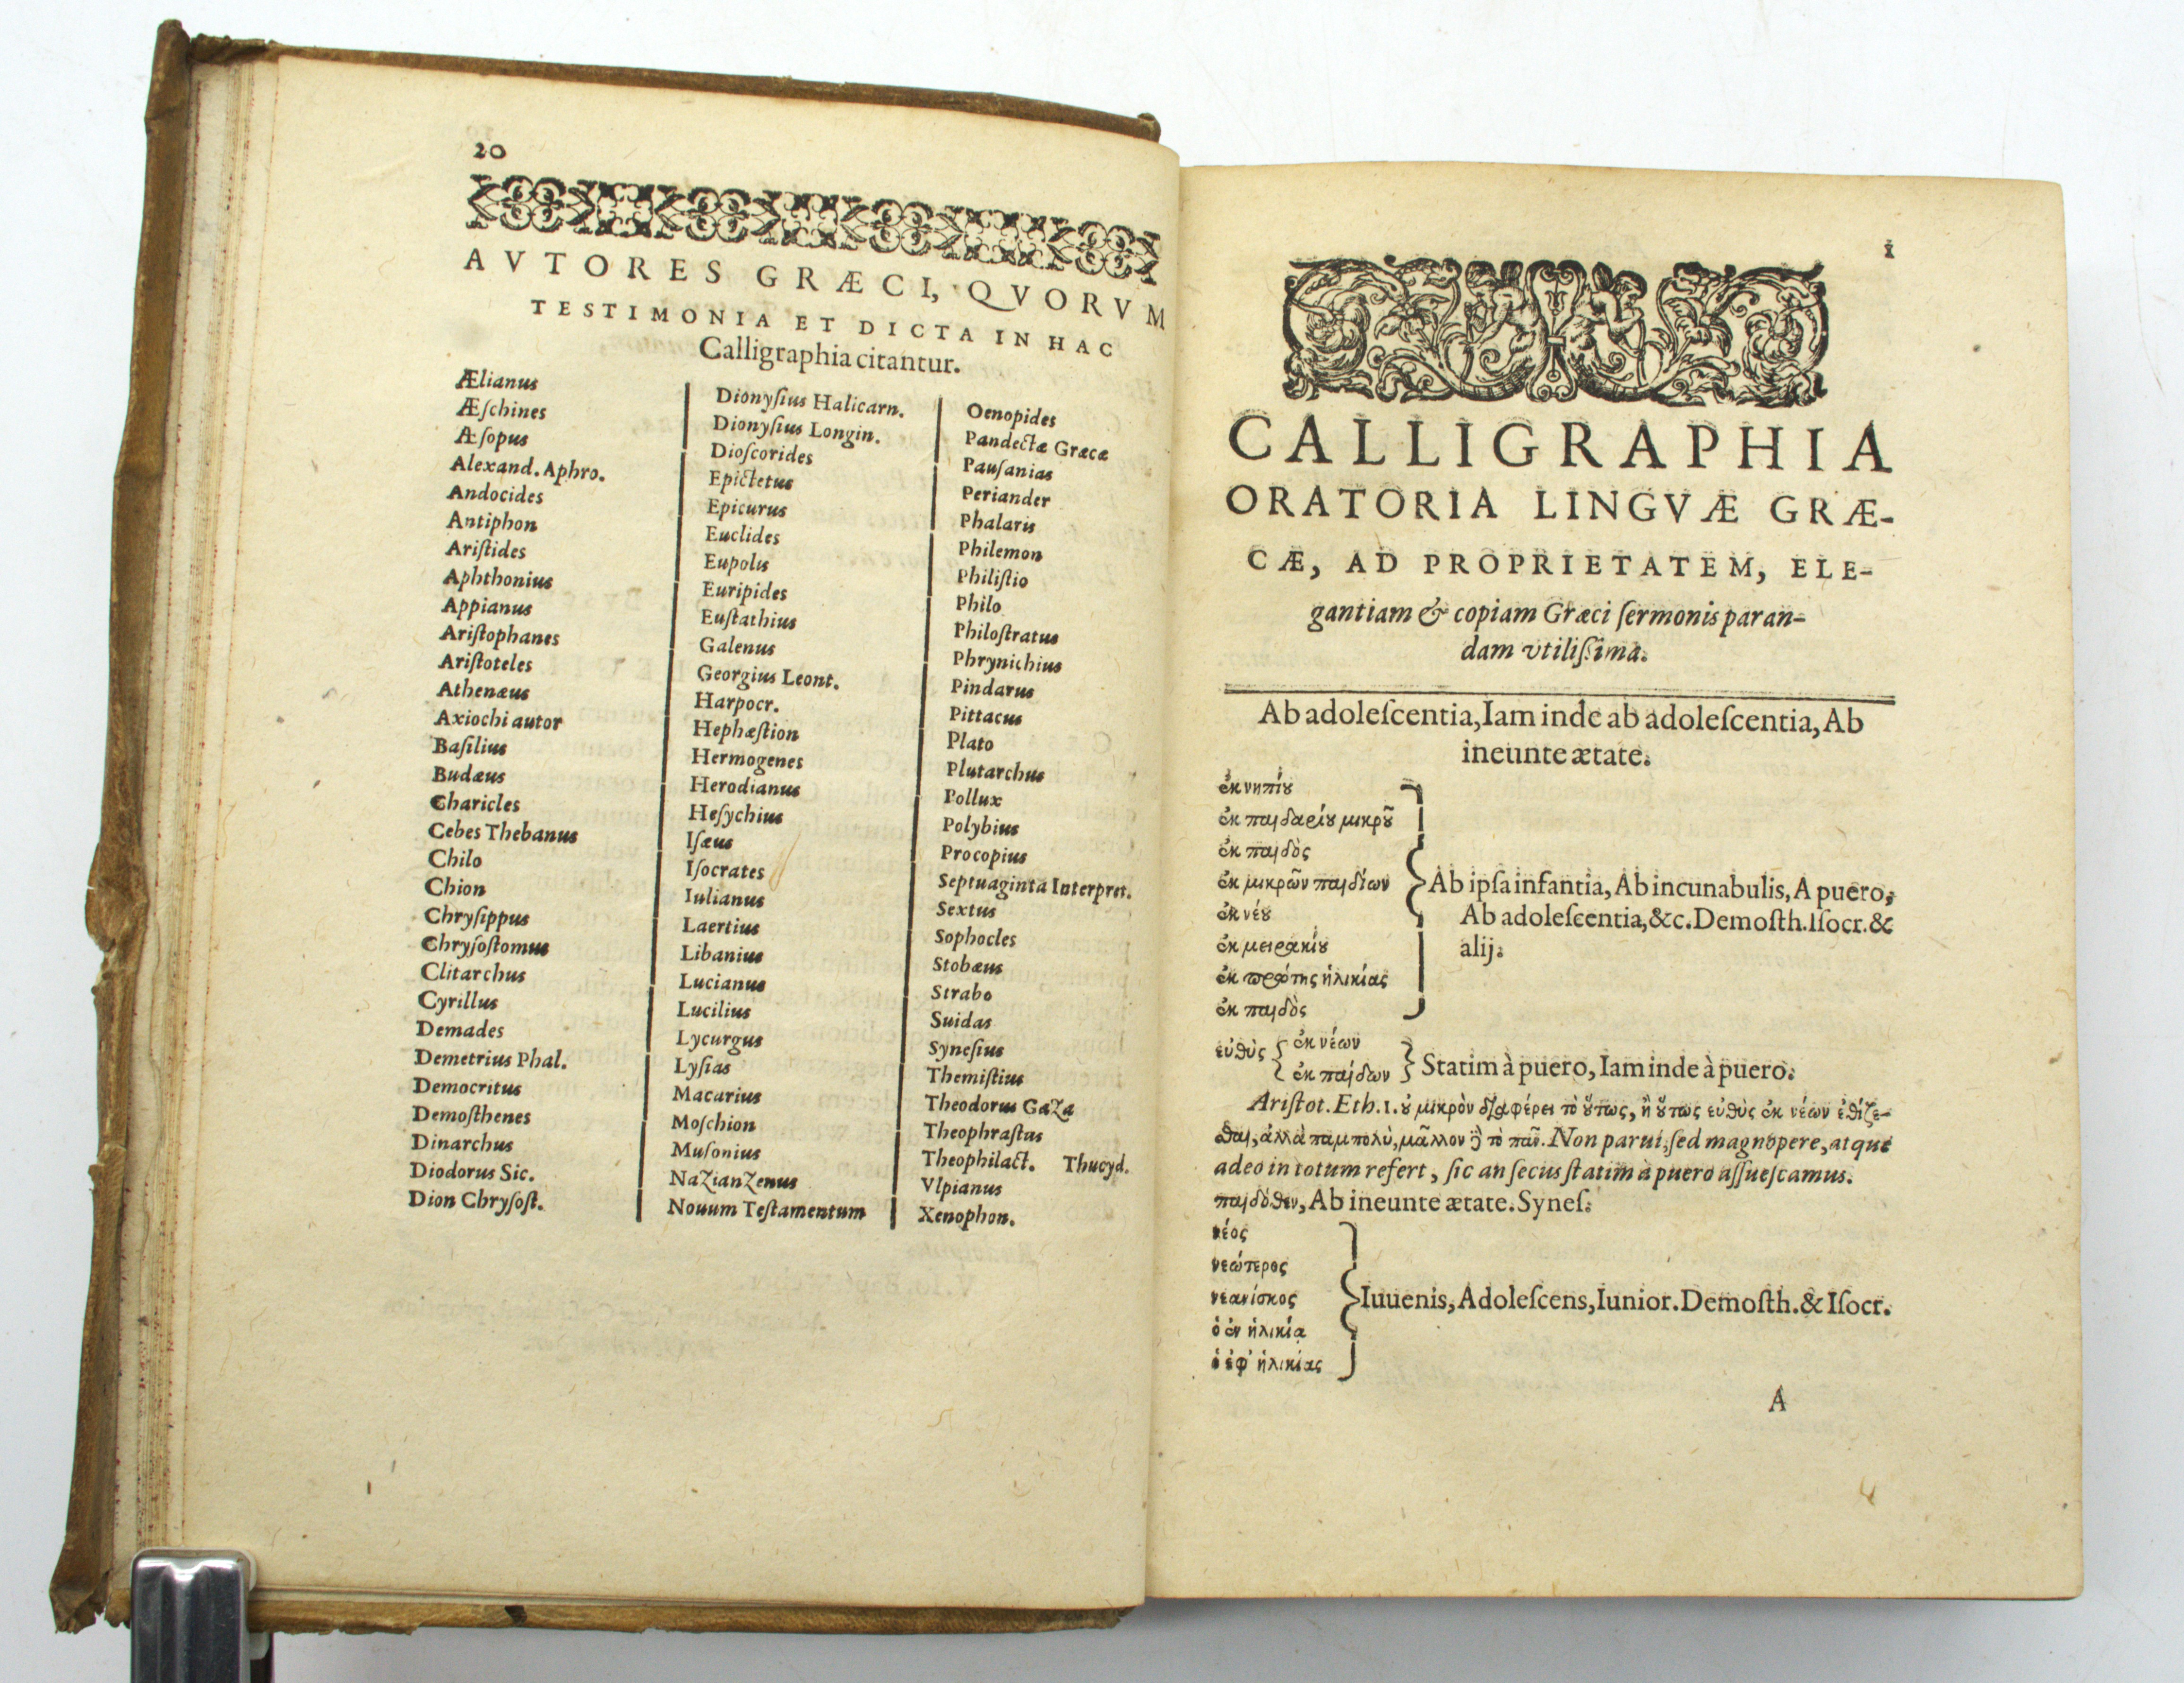 20
AVTORES GRÆCI, QVORVM
TESTIMONIA ET DICTA IN HAC
Calligraphia citantur.
Ælianus
Æſchines
Æſopus
Alexand. Aphro.
Andocides
Antiphon
Ariſtides
Aphthonius
Appianus
Ariſtophanes
Ariſtoteles
Athenæus
Axiochi autor
Baſilius
Budæus
Charicles
Cebes Thebanus
Chilo
Chion
Chryſippus
Chryſoſtomus
Clitarchus
Cyrillus
Demades
Demetrius Phal.
Democritus
Demoſthenes
Dinarchus
Diodorus Sic.
Dion Chryſoſt.
Dionyſius Halicarn.
Dionyſius Longin.
Dioſcorides
Epictetus
Epicurus
Euclides
Eupolis
Euripides
Euſtathius
Galenus
Georgius Leont.
Harpocr.
Hephæſtion
Hermogenes
Herodianus
Heſychius
Iſæus
Iſocrates
Iulianus
Laertius
Libanius
Lucianus
Lucilius
Lycurgus
Lyſias
Macarius
Moſchion
Muſonius
Nazianzenus
Nouum Teſtamentum
Oenopides
Pandectæ Græcæ
Pauſanias
Periander
Phalaris
Philemon
Philiſtio
Philo
Philoſtratus
Phrynichius
Pindarus
Pittacus
Plato
Plutarchus
Pollux
Polybius
Procopius
Septuaginta Interpret.
Sextus
Sophocles
Stobæus
Strabo
Suidas
Syneſius
Themiſtius
Theodorus Gaza
Theophraſtus
Theophilact. Thucyd.
Vlpianus
Xenophon.
1
CALLIGRAPHIA
ORATORIA LINGVÆ GRÆ-
CÆ, AD PROPRIETATEM, ELE-
gantiam & copiam Græci ſermonis paran-
dam vtiliſsima.
Ab adoleſcentia, Iam inde ab adoleſcentia, Ab
ineunte ætate.
ἐκ νηπίȣ
ἐκ παιδαρίȣ μικρȣ͂
ἐκ παιδὸς
ἐκ μικρῶν παιδίων
ἐκ νέȣ
ἐκ μειρακίȣ
ἐκ πρώτης ἡλικίας
ἐκ παιδὸς
Ab ipſa infantia, Ab incunabulis, A puero,
Ab adoleſcentia, &c. Demoſth. Iſocr. &
alij.
εὐθὺς { ἐκ νέων
ἐκ παίδων } Statim à puero, Iam inde à puero.
Ariſtot. Eth. 1. ȣ̓ μικρὸν διαφέρει τὸ ȣ̔́τως, ἢ ȣ̔́τως εὐθὺς ἐκ νέων ἐθίζε-
σθαι, ἀλλὰ παμπολὺ, μᾶλλον δὲ τὸ πᾶν. Non parui, ſed magnopere, atque
adeo in totum refert, ſic an ſecus ſtatim à puero aſſueſcamus.
παιδόθεν, Ab ineunte ætate. Syneſ.
νέος
νεώτερος
νεανίσκος
ὁ ἐν ἡλικίᾳ
ὁ ἐφ' ἡλικίας
Iuuenis, Adoleſcens, Iunior. Demoſth. & Iſocr.
A